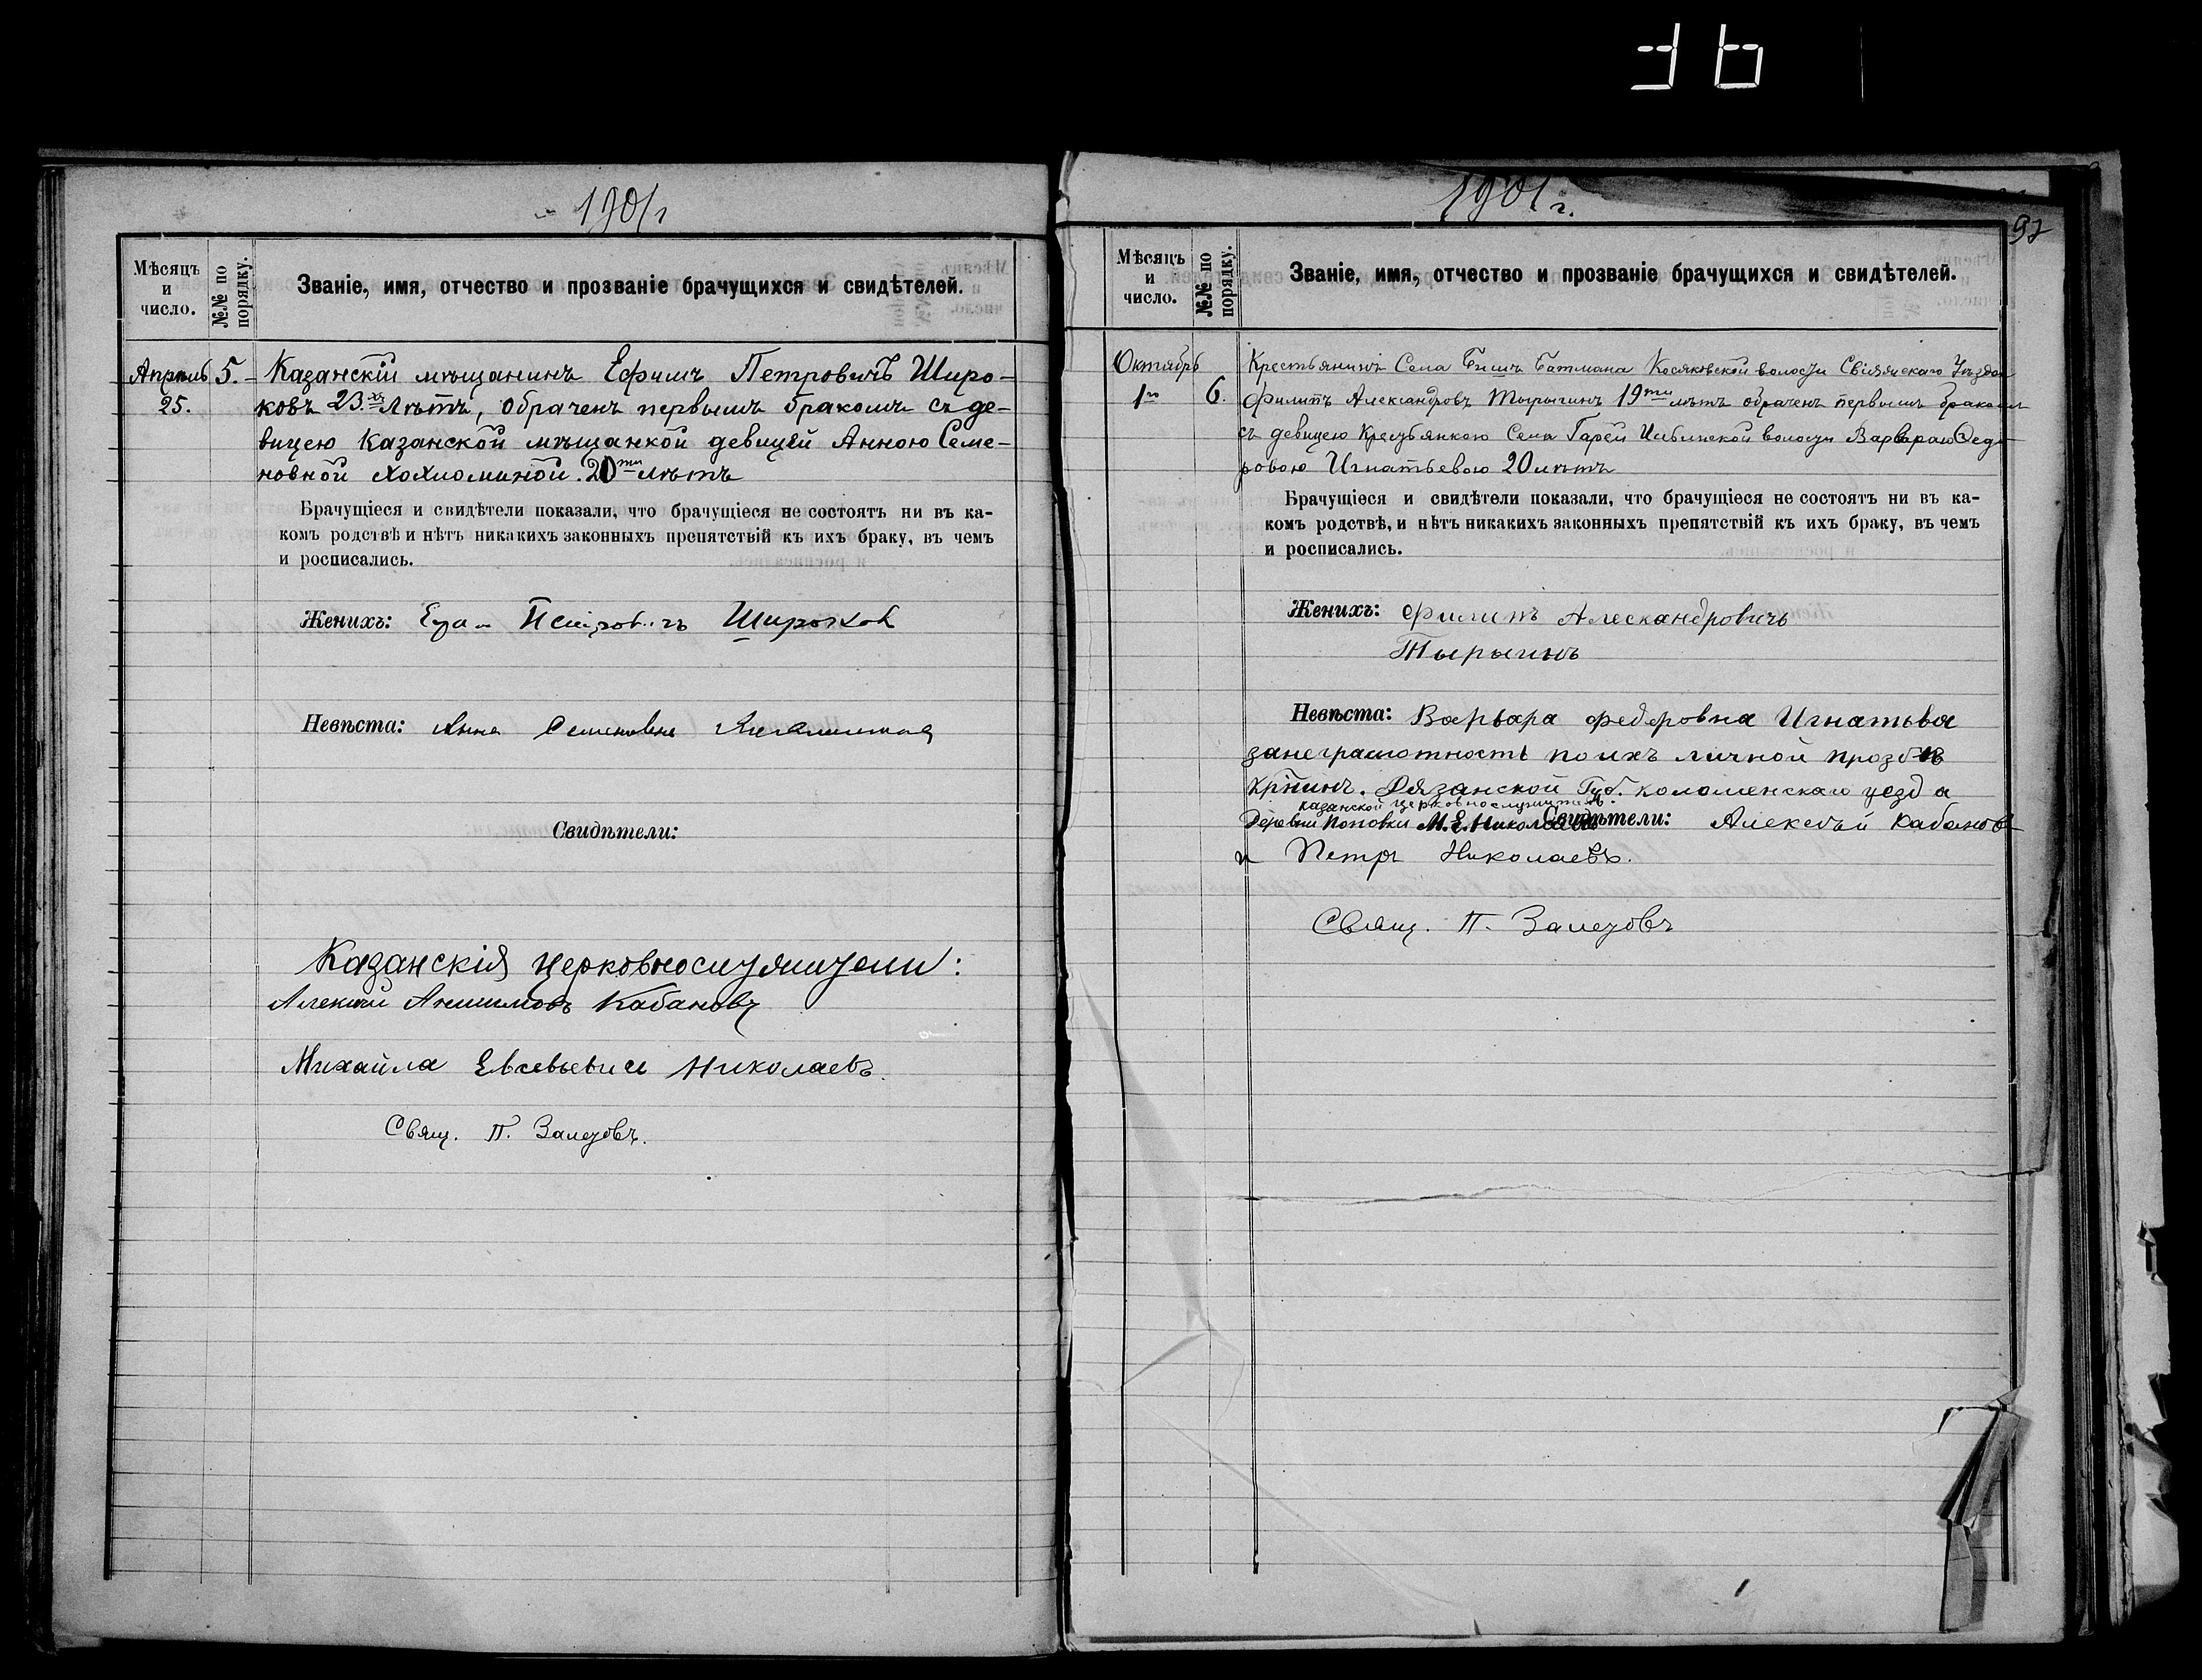 1901 г
Мѣсяцъ и число.
№№ по порядку.
Званіе, имя, отчество и прозваніе брачущихся и свидѣтелей.
Апрѣль 5. Казанскій мѣщанинъ Ефимъ Петровичъ Широ-
25. ковъ 23.хъ лѣтъ, обраченъ первымъ бракомъ съ де-
вицею Казанской мѣщанкой девицей Анною Семе-
новной 20ти лѣтъ
Брачущіеся и свидѣтели показали, что брачущіеся не состоятъ ни въ ка-
комъ родствѣ и нѣтъ никакихъ законныхъ препятствій къ ихъ браку, въ чемъ
и росписались.
Женихъ: Петровичъ Широков
Невѣста: Анна Семеновна
Свидѣтели:
Казанскія церковнослужители:
Алексѣй Анисимовъ Кабановъ
Михайла Евсевьевичь Николаевъ.
Свящ. П. Залетовъ.
1901 г.
97
Мѣсяцъ и число.
№№ по порядку.
Званіе, имя, отчество и прозваніе брачущихся и свидѣтелей.
Октябрь Крестьянинъ Села Бишъ Батмана Косяковской волости Свіяжскаго Уѣзда
1го 6. Филипъ Александровъ Тырыгинъ 19ти лѣтъ обраченъ первымъ бракомъ
съ девицею Крестьянкою Села Гарей волости Варварой Федо-
ровою Игнатьевою 20 лѣтъ
Брачущіеся и свидѣтели показали, что брачущіеся не состоятъ ни въ ка-
комъ родствѣ, и нѣтъ никакихъ законныхъ препятствій къ ихъ браку, въ чемъ
и росписались.
Женихъ: Филипъ Алескандровичъ
Тырыгинъ
Невѣста: Варвара Федоровна Игнатьва
занеграмотность поихъ личной прозбѣ
крнинъ. Рязанской Губ. коломенскаго уезда
казанской церковнослужитель.
Деревни Поповки М. Е. Николаевъ Свидѣтели: Алексѣй Кабанов
и Петръ Николаевъ.
Свящ. П. Залетовъ